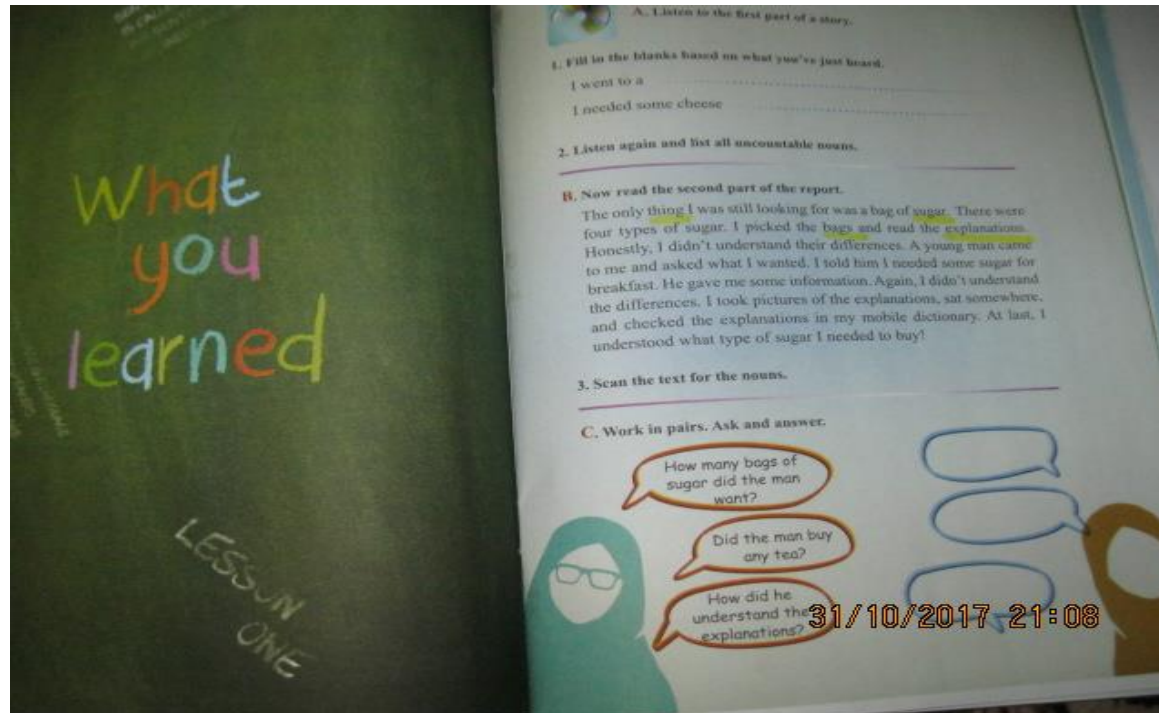 What
you
learned
LESSON
ONE
A. Listen to the first part of a story.
1. Fill in the blanks based on what you've just heard.
I went to a
I needed some cheese
2. Listen again and list all uncountable nouns.
B. Now read the second part of the report.
The only thing I was still looking for was a bag of sugar. There were
four types of sugar. I picked the bags and read the explanations.
Honestly, I didn't understand their differences. A young man came
to me and asked what I wanted. I told him I needed some sugar for
breakfast. He gave me some information. Again, I didn't understand
the differences. I took pictures of the explanations, sat somewhere,
and checked the explanations in my mobile dictionary. At last, I
understood what type of sugar I needed to buy!
3. Scan the text for the nouns.
C. Work in pairs. Ask and answer.
How many bags of
sugar did the man
want?
Did the man buy
any tea?
How did he
understand the
explanations?
31/10/2017 21:08